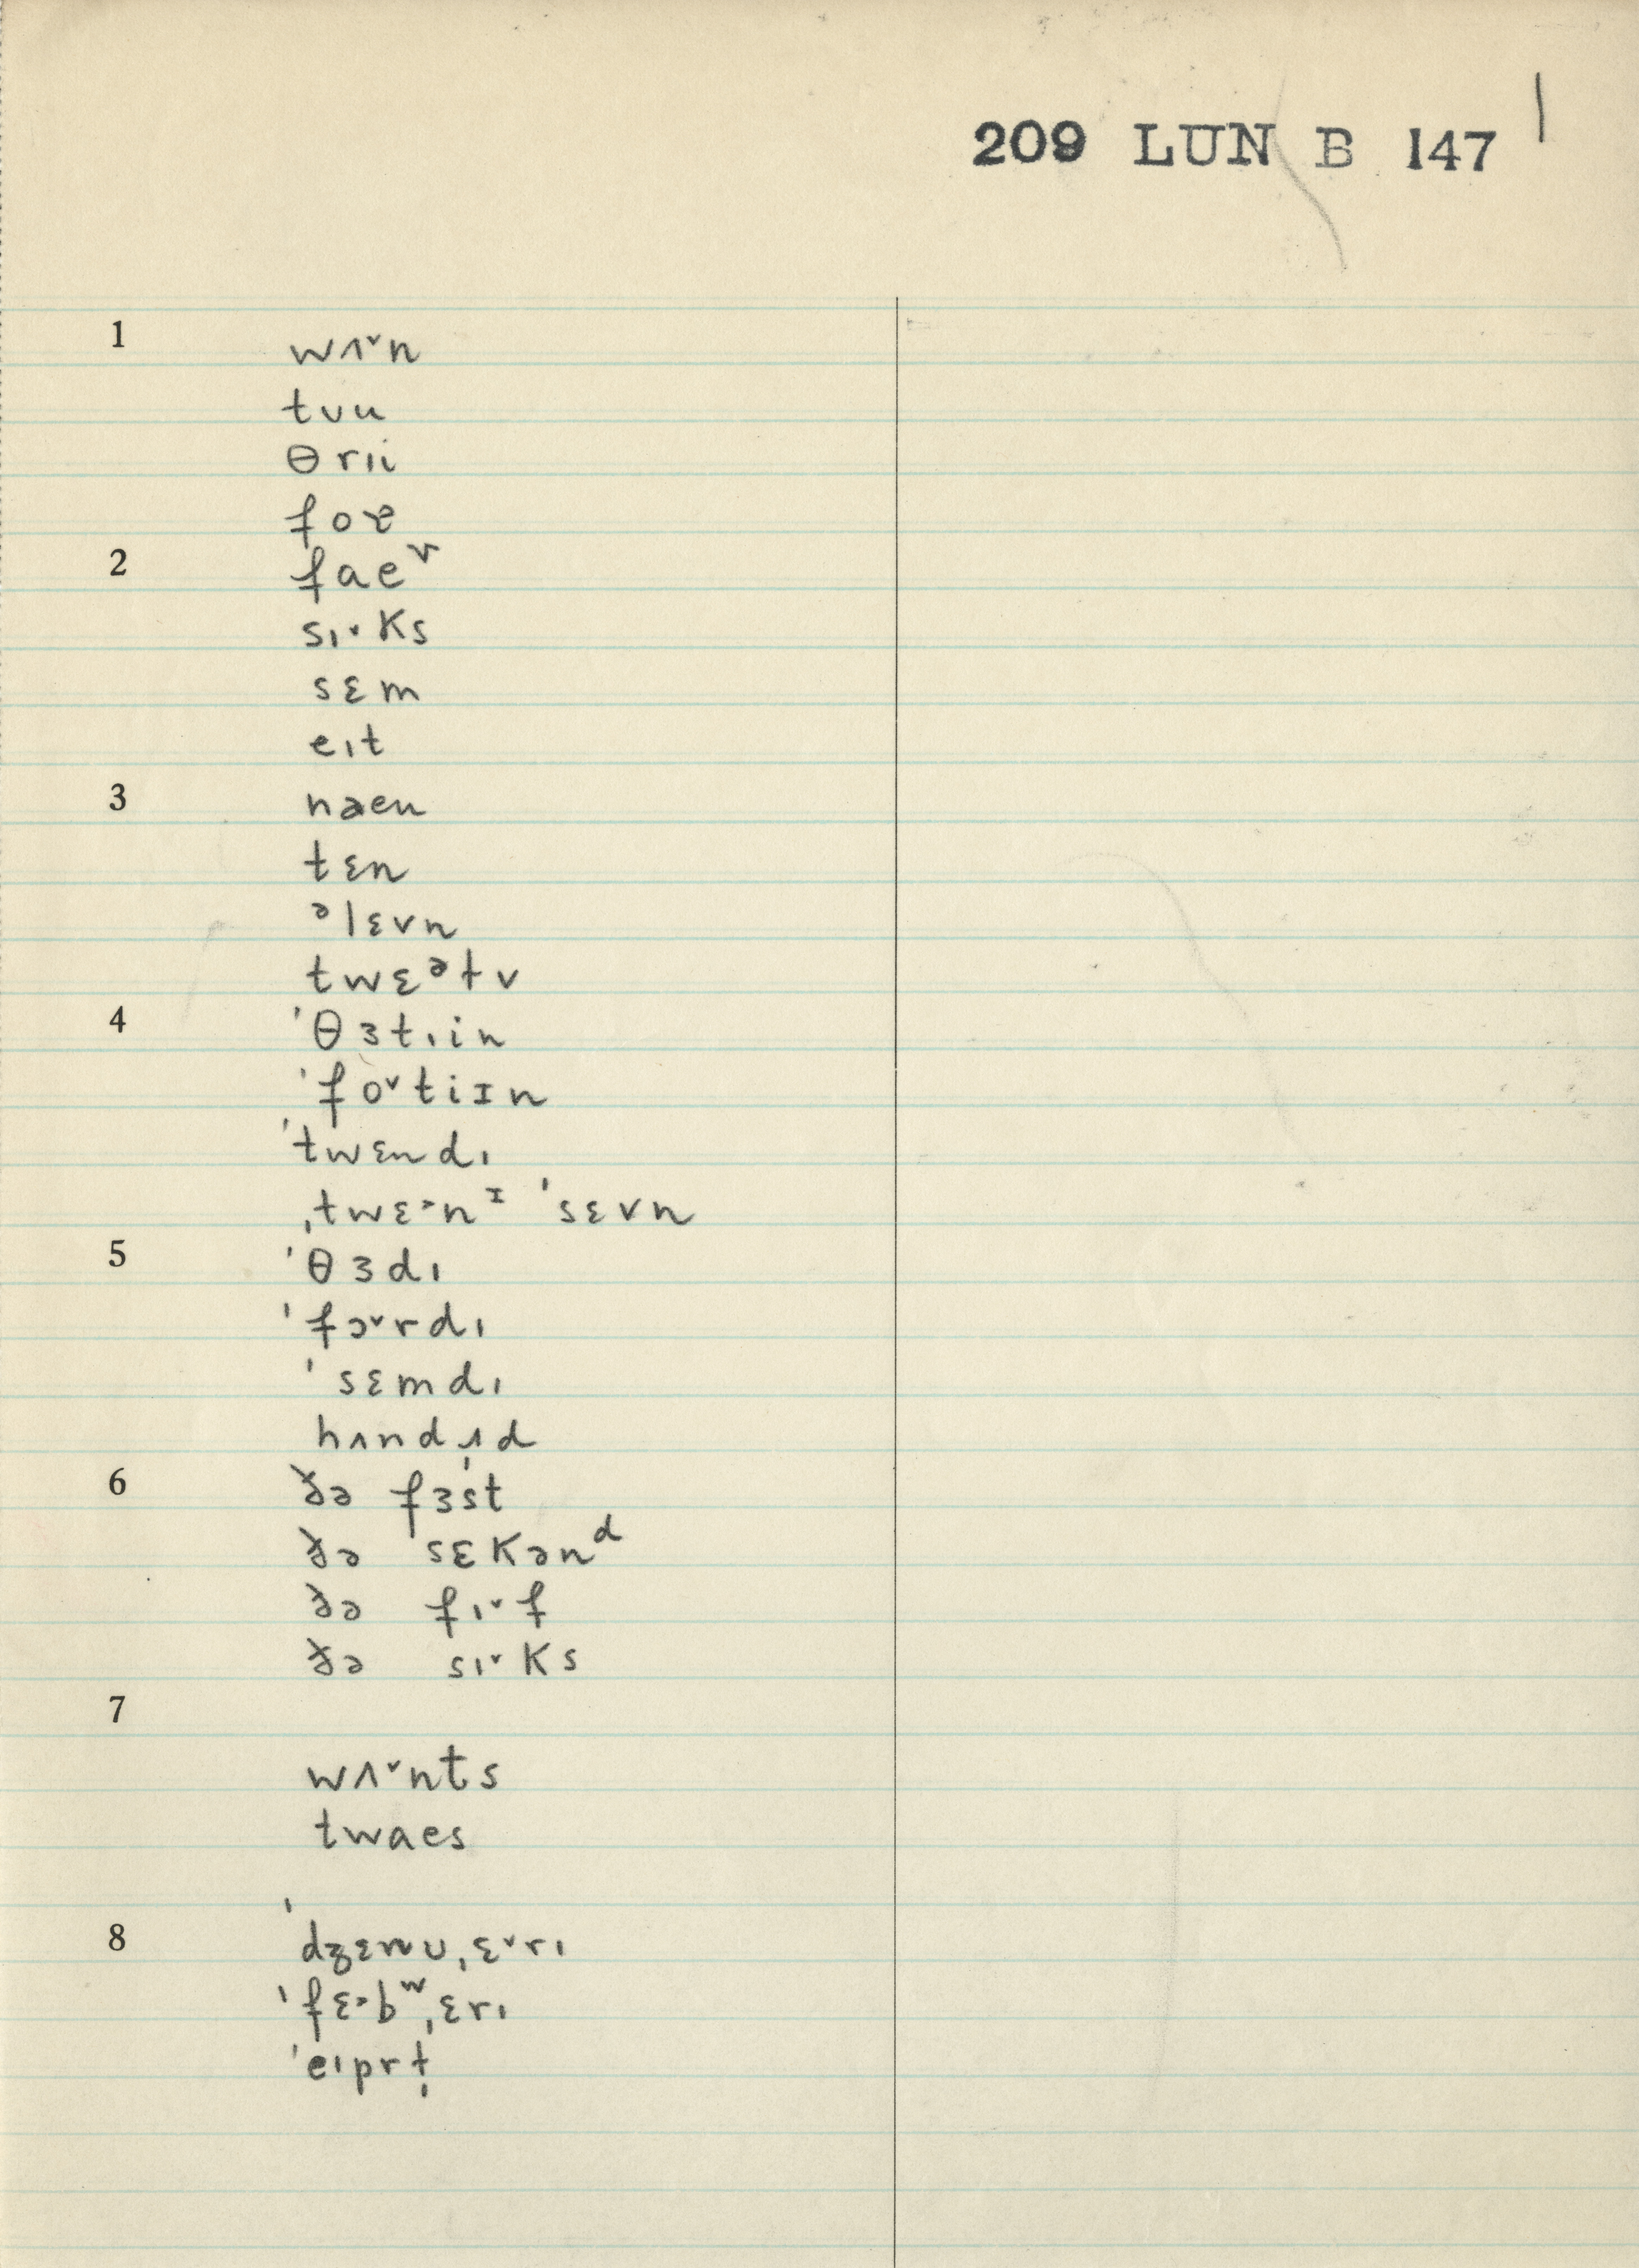 209 LUN B 147
1 wʌ˅n
tʊu
θrɪi
foɚ
2 faeᵛ
sɪ˅ks
sɛm
eɪt
3 naen
tɛn
ᵊlɛvn
twɛᵊtv
4 ˈθɜtɪin
ˈfo˅tiɪn
ˈtwɛndɪ
ˌtwɛ˃nᶦ ˈsɛvn
5 ˈθɜdɪ
ˈfɔ˅rdɪ
ˈsɛmdɪ
hʌndɹd
6 ðə fɜst
ðə ˈsɛkənᵈ
ðə fɪ˅f
ðə sɪ˅ks
7
wʌ˅nts
twaes
8 ˈdʒɛnʊˌɛ˅rɪ
ˈfɛ˃bʷˌɛrɪ
ˈeɪprɫ̩